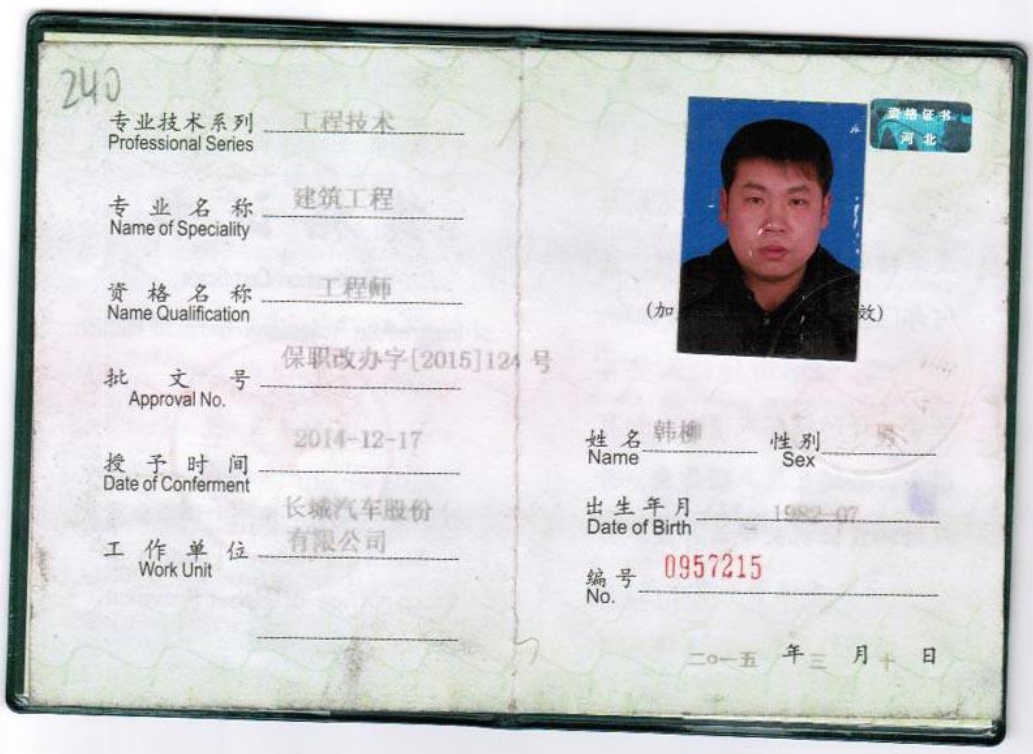 240
专业技术系列 工程技术
Professional Series
专业名称 建筑工程
Name of Speciality
资格名称 工程师
Name Qualification
批文号 保职改办字[2015]124号
Approval No.
授予时间 2014-12-17
Date of Conferment
长城汽车股份
工作单位 有限公司
Work Unit
资格证书
河北
(加 效)
姓名 韩柳 性别 男
Name Sex
出生年月 1982-07
Date of Birth
编号 0957215
No.
二〇一五 年 三 月 十 日